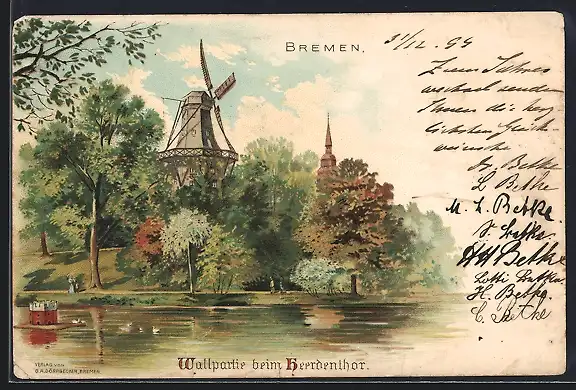 BREMEN.
31/12. 99
Zum Jahres
wechsel senden
Ihnen die herz
lichsten Glück
wünsche
Betke
L Betke
M. L. Betke.
HH Betke
Lotti
H. Betke
C. Betke
Wallpartie beim Heerdenthor.
VERLAG VON
BREMEN